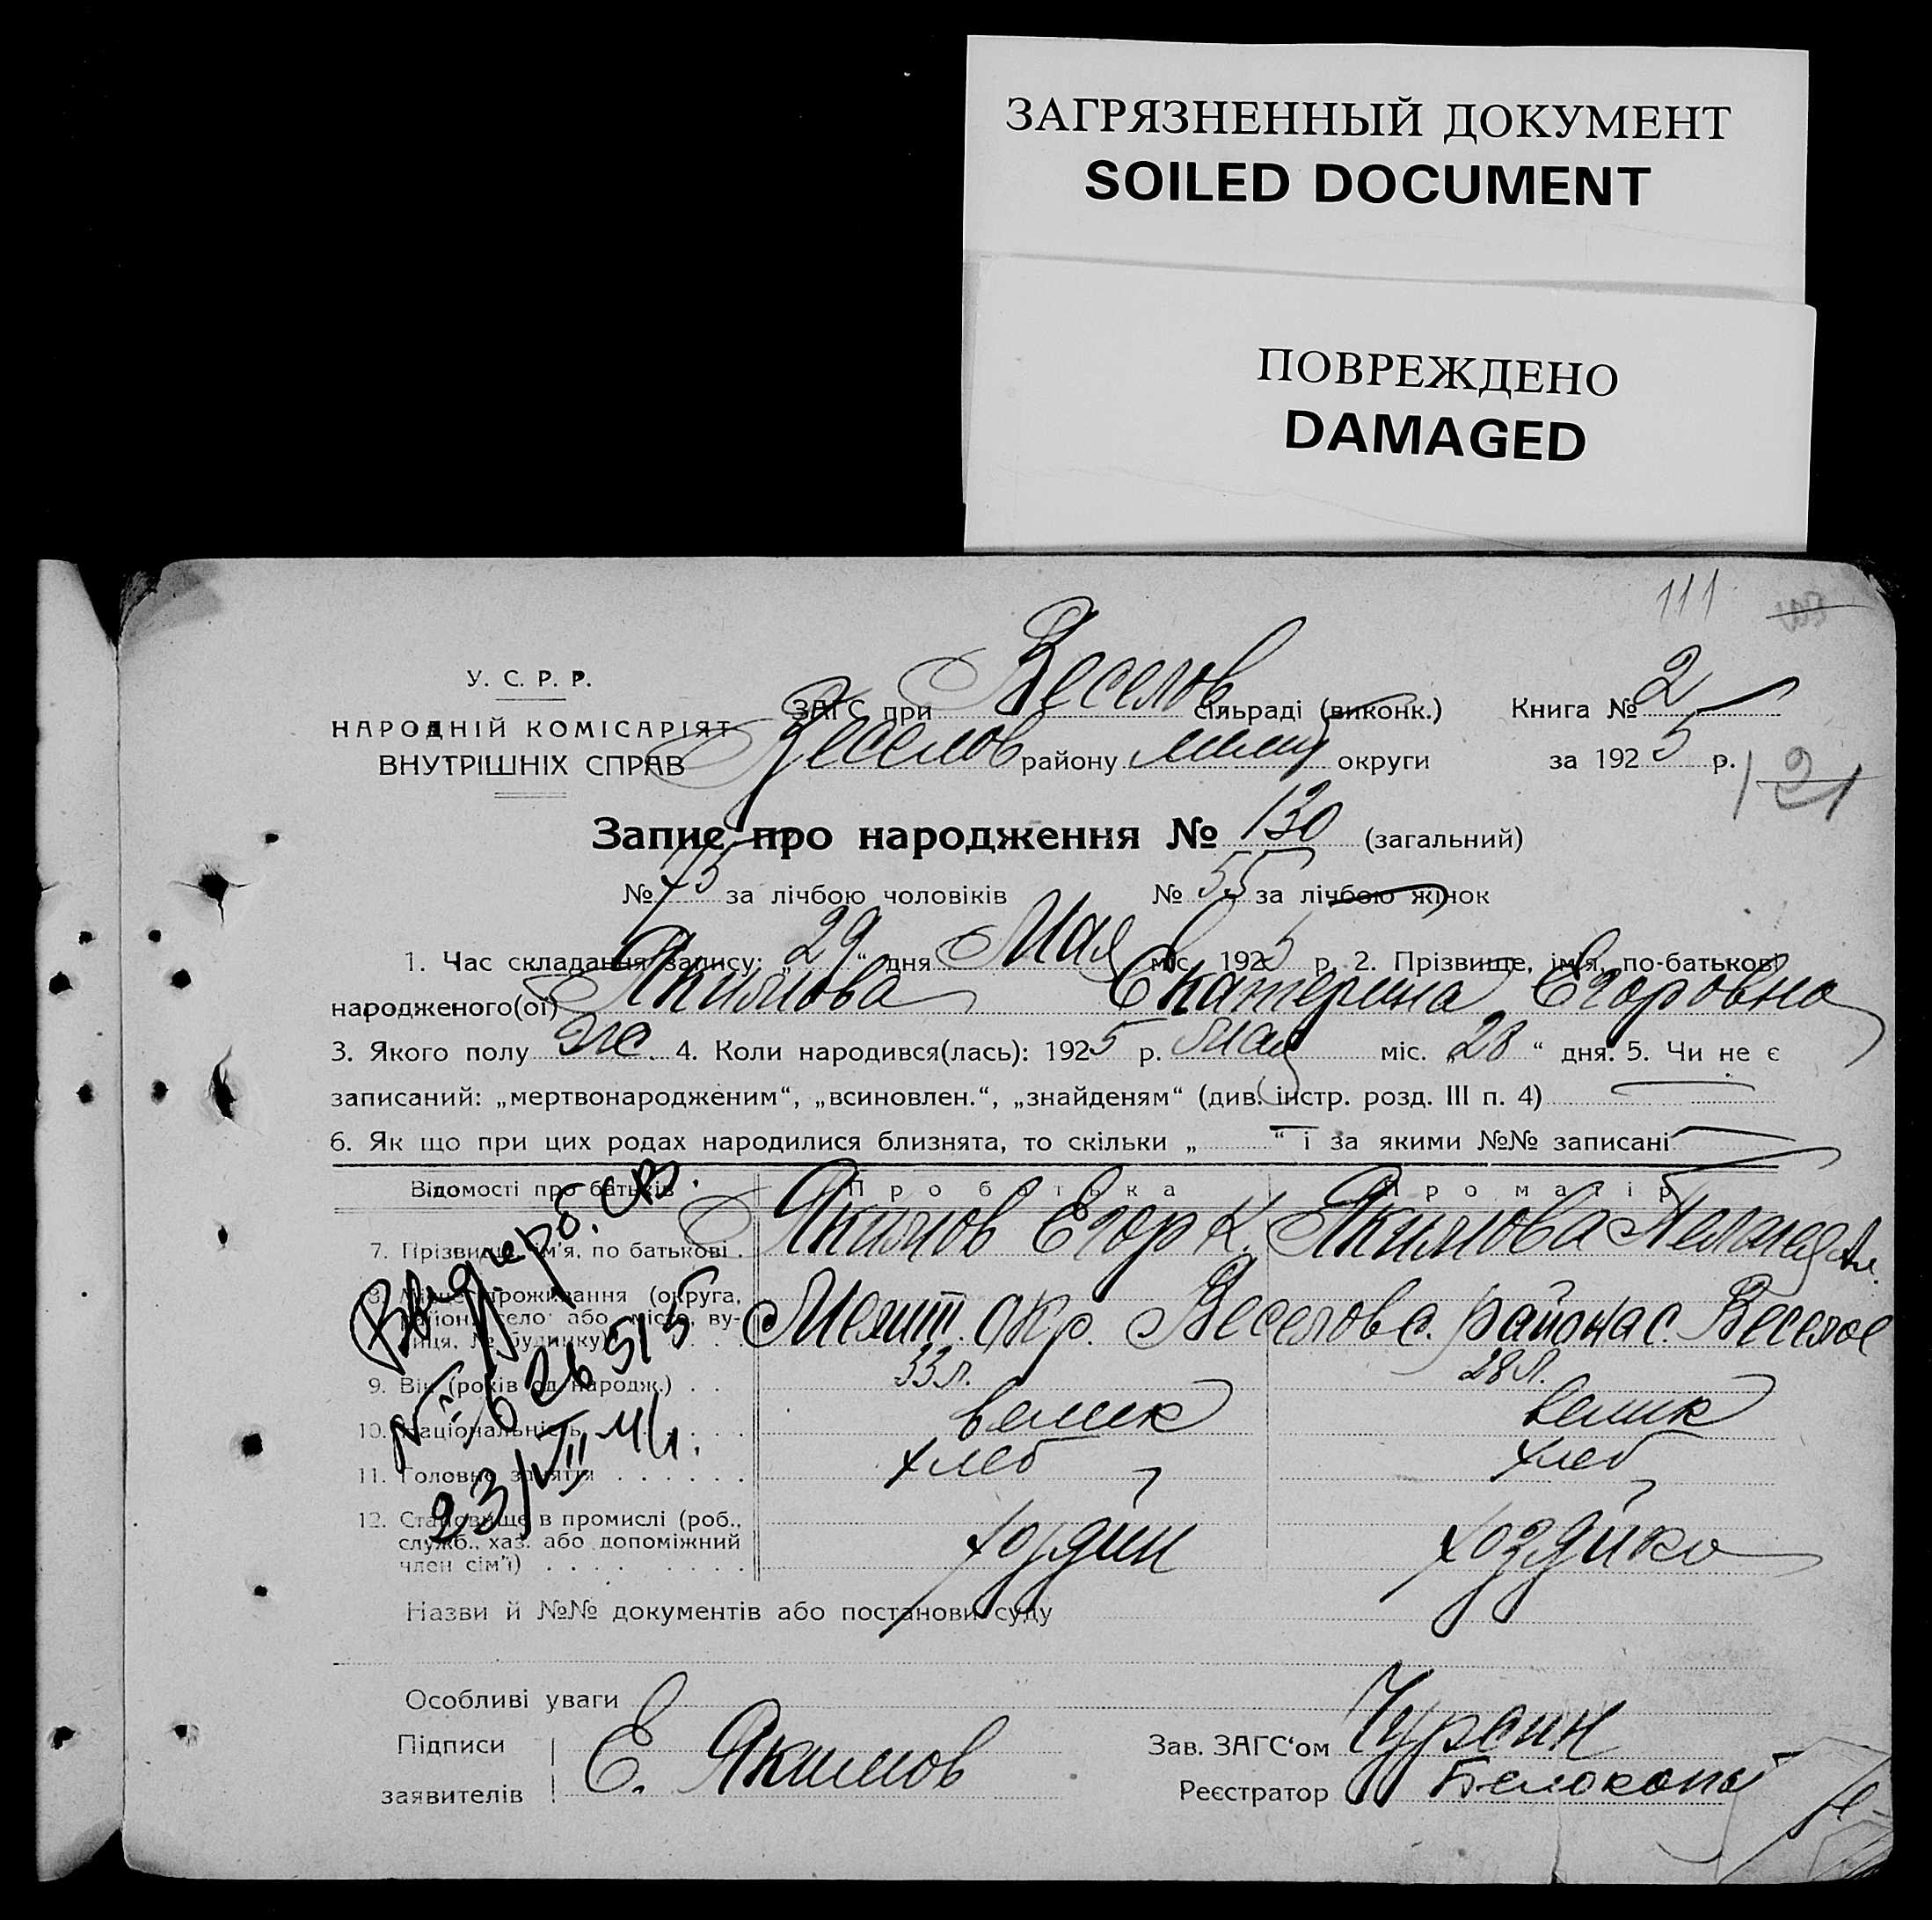 ЗАГРЯЗНЕННЫЙ ДОКУМЕНТ
SOILED DOCUMENT
ПОВРЕЖДЕНО
DAMAGED
111
У. С. Р. Р.
НАРОДНІЙ КОМІСАРІЯТ
ВНУТРІШНІХ СПРАВ
ЗАГС при Веселов сільраді (виконк.) Книга № 2
Веселов району округи за 1925 р.
121
Запис про народження № 130 (загальний)
№ 75 за лічбою чоловіків № 55 за лічбою жінок
1. Час складання запису: „29“ дня Мая міс. 1925 р. 2. Прізвище, ім'я, по-батькові
народженого(ої) Якимова Екатерина Егоровна
3. Якого полу ж. 4. Коли народився(лась): 1925 р. Мая міс. „28“ дня. 5. Чи не є
записаний: „мертвонародженим“, „всиновлен.“, „знайденям“ (див. інстр. розд. III п. 4)
6. Як що при цих родах народилися близнята, то скільки „ “ і за якими №№ записані
Відомості про батьків Про батька Про матір
7. Прізвище, ім'я, по батькові . Якимов Егор К. Якимова Пелагея
8. Місце проживання (округа, район, село або місто, вулиця, № будинку) Мелит. окр. Веселовс. района с. Веселое
9. Вік (років од народж.) . . 33 л. 28 л.
10. Національність велик велик
11. Головне заняття . . . . . . хлеб хлеб
12. Становище в промислі (роб., служб., хаз. або допоміжний член сім'ї) хозяин хозяйка
23/VII 41.
Назви й №№ документів або постанови суду
Особливі уваги
Підписи заявителів Е. Якимов
Зав. ЗАГС'ом Чурсин
Реєстратор Белокопы